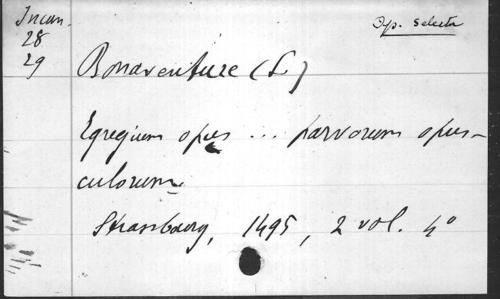 Incun.
28
29
Op. selecta
Bonaventure (S.)
Egregium opus ... parvorum opus-
culorum
Strassbourg, 1495, 2 vol. 4°